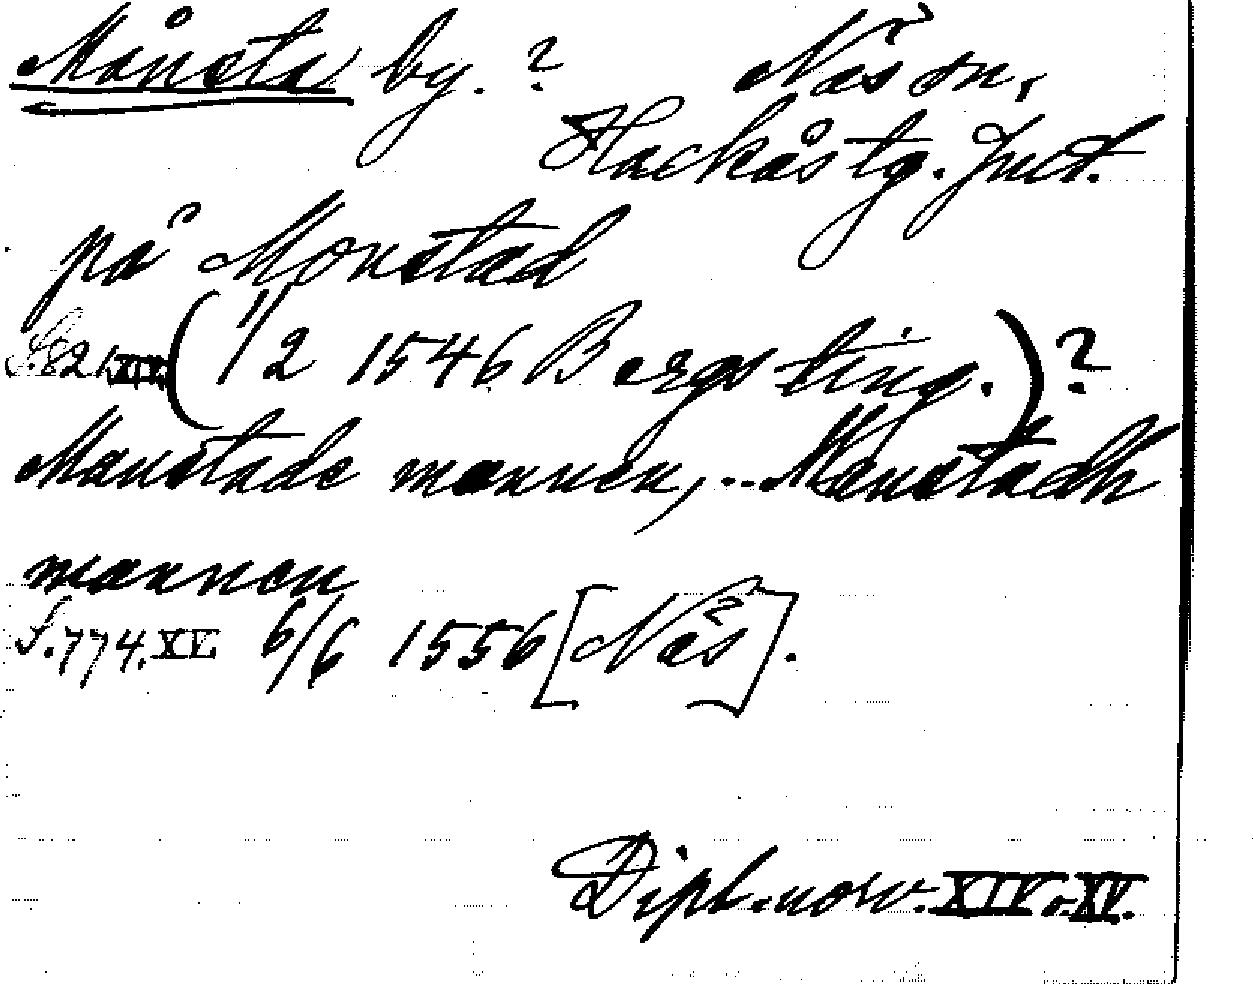 Månsta by. ? Näs sn,
Hackås tg. Jmt.
på Monstad
S.821.XIV (1/2 1546 Bergs ting.) ?
Manstade mannen, ... Menstadh
mannen
S.774.XV 6/6 1556 [Näs].
Dipl. norv. XIV o. XV.